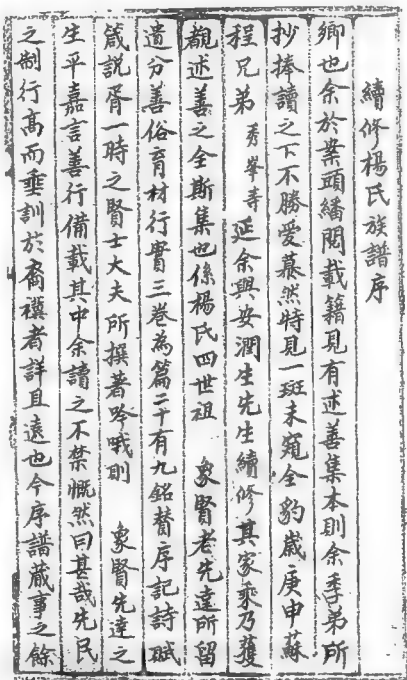 續修楊氏族譜序
鄉也余於案頭繙閱載籍見有述善集本則余季弟所
抄捧讀之下不勝愛慕然特見一斑未窺全豹歲庚申蘇
程兄弟 秀峯寺 延余與安潤生先生續修其家乘乃獲
觀述善之全斯集也係楊氏四世祖 象賢老先達所留
遺分善俗育材行實三卷為篇二十有九銘贊序記詩賦
箴説胥一時之賢士大夫所撰著吟哦則 象賢先達之
生平嘉言善行備載其中余讀之不禁慨然曰甚哉先民
之制行高而垂訓於裔禩者詳且遠也今序譜蕆事之餘